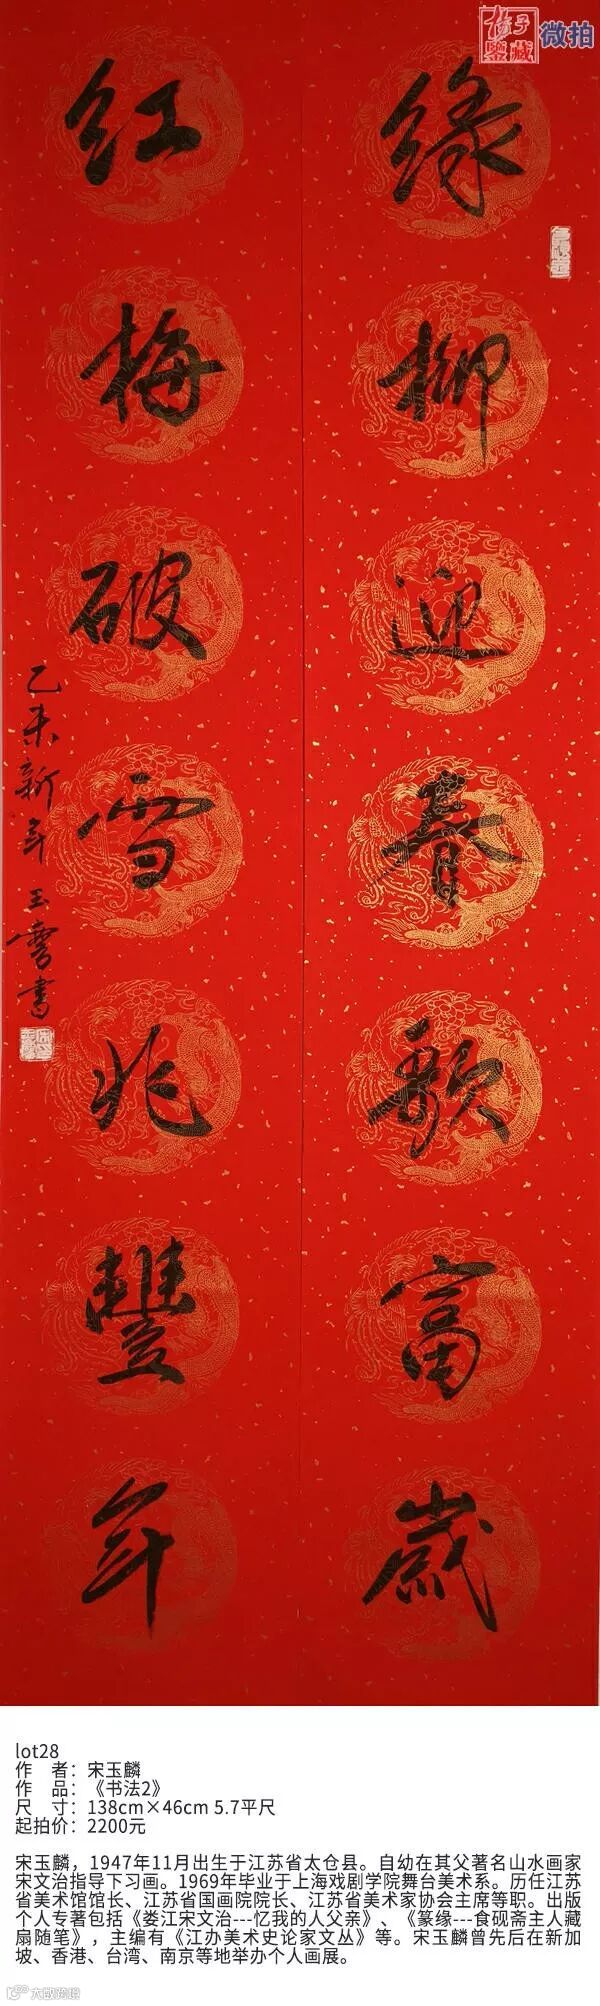 扬子
鑒藏
微拍
绿柳迎春歌富歲
红梅破雪兆豐年
乙未新年玉書
lot28
作　者：宋玉麟
作　品：《书法2》
尺　寸：138cm×46cm 5.7平尺
起拍价：2200元
宋玉麟，1947年11月出生于江苏省太仓县。自幼在其父著名山水画家
宋文治指导下习画。1969年毕业于上海戏剧学院舞台美术系。历任江苏
省美术馆馆长、江苏省国画院院长、江苏省美术家协会主席等职。出版
个人专著包括《娄江宋文治---忆我的人父亲》、《篆缘---食砚斋主人藏
扇随笔》，主编有《江办美术史论家文丛》等。宋玉麟曾先后在新加
坡、香港、台湾、南京等地举办个人画展。